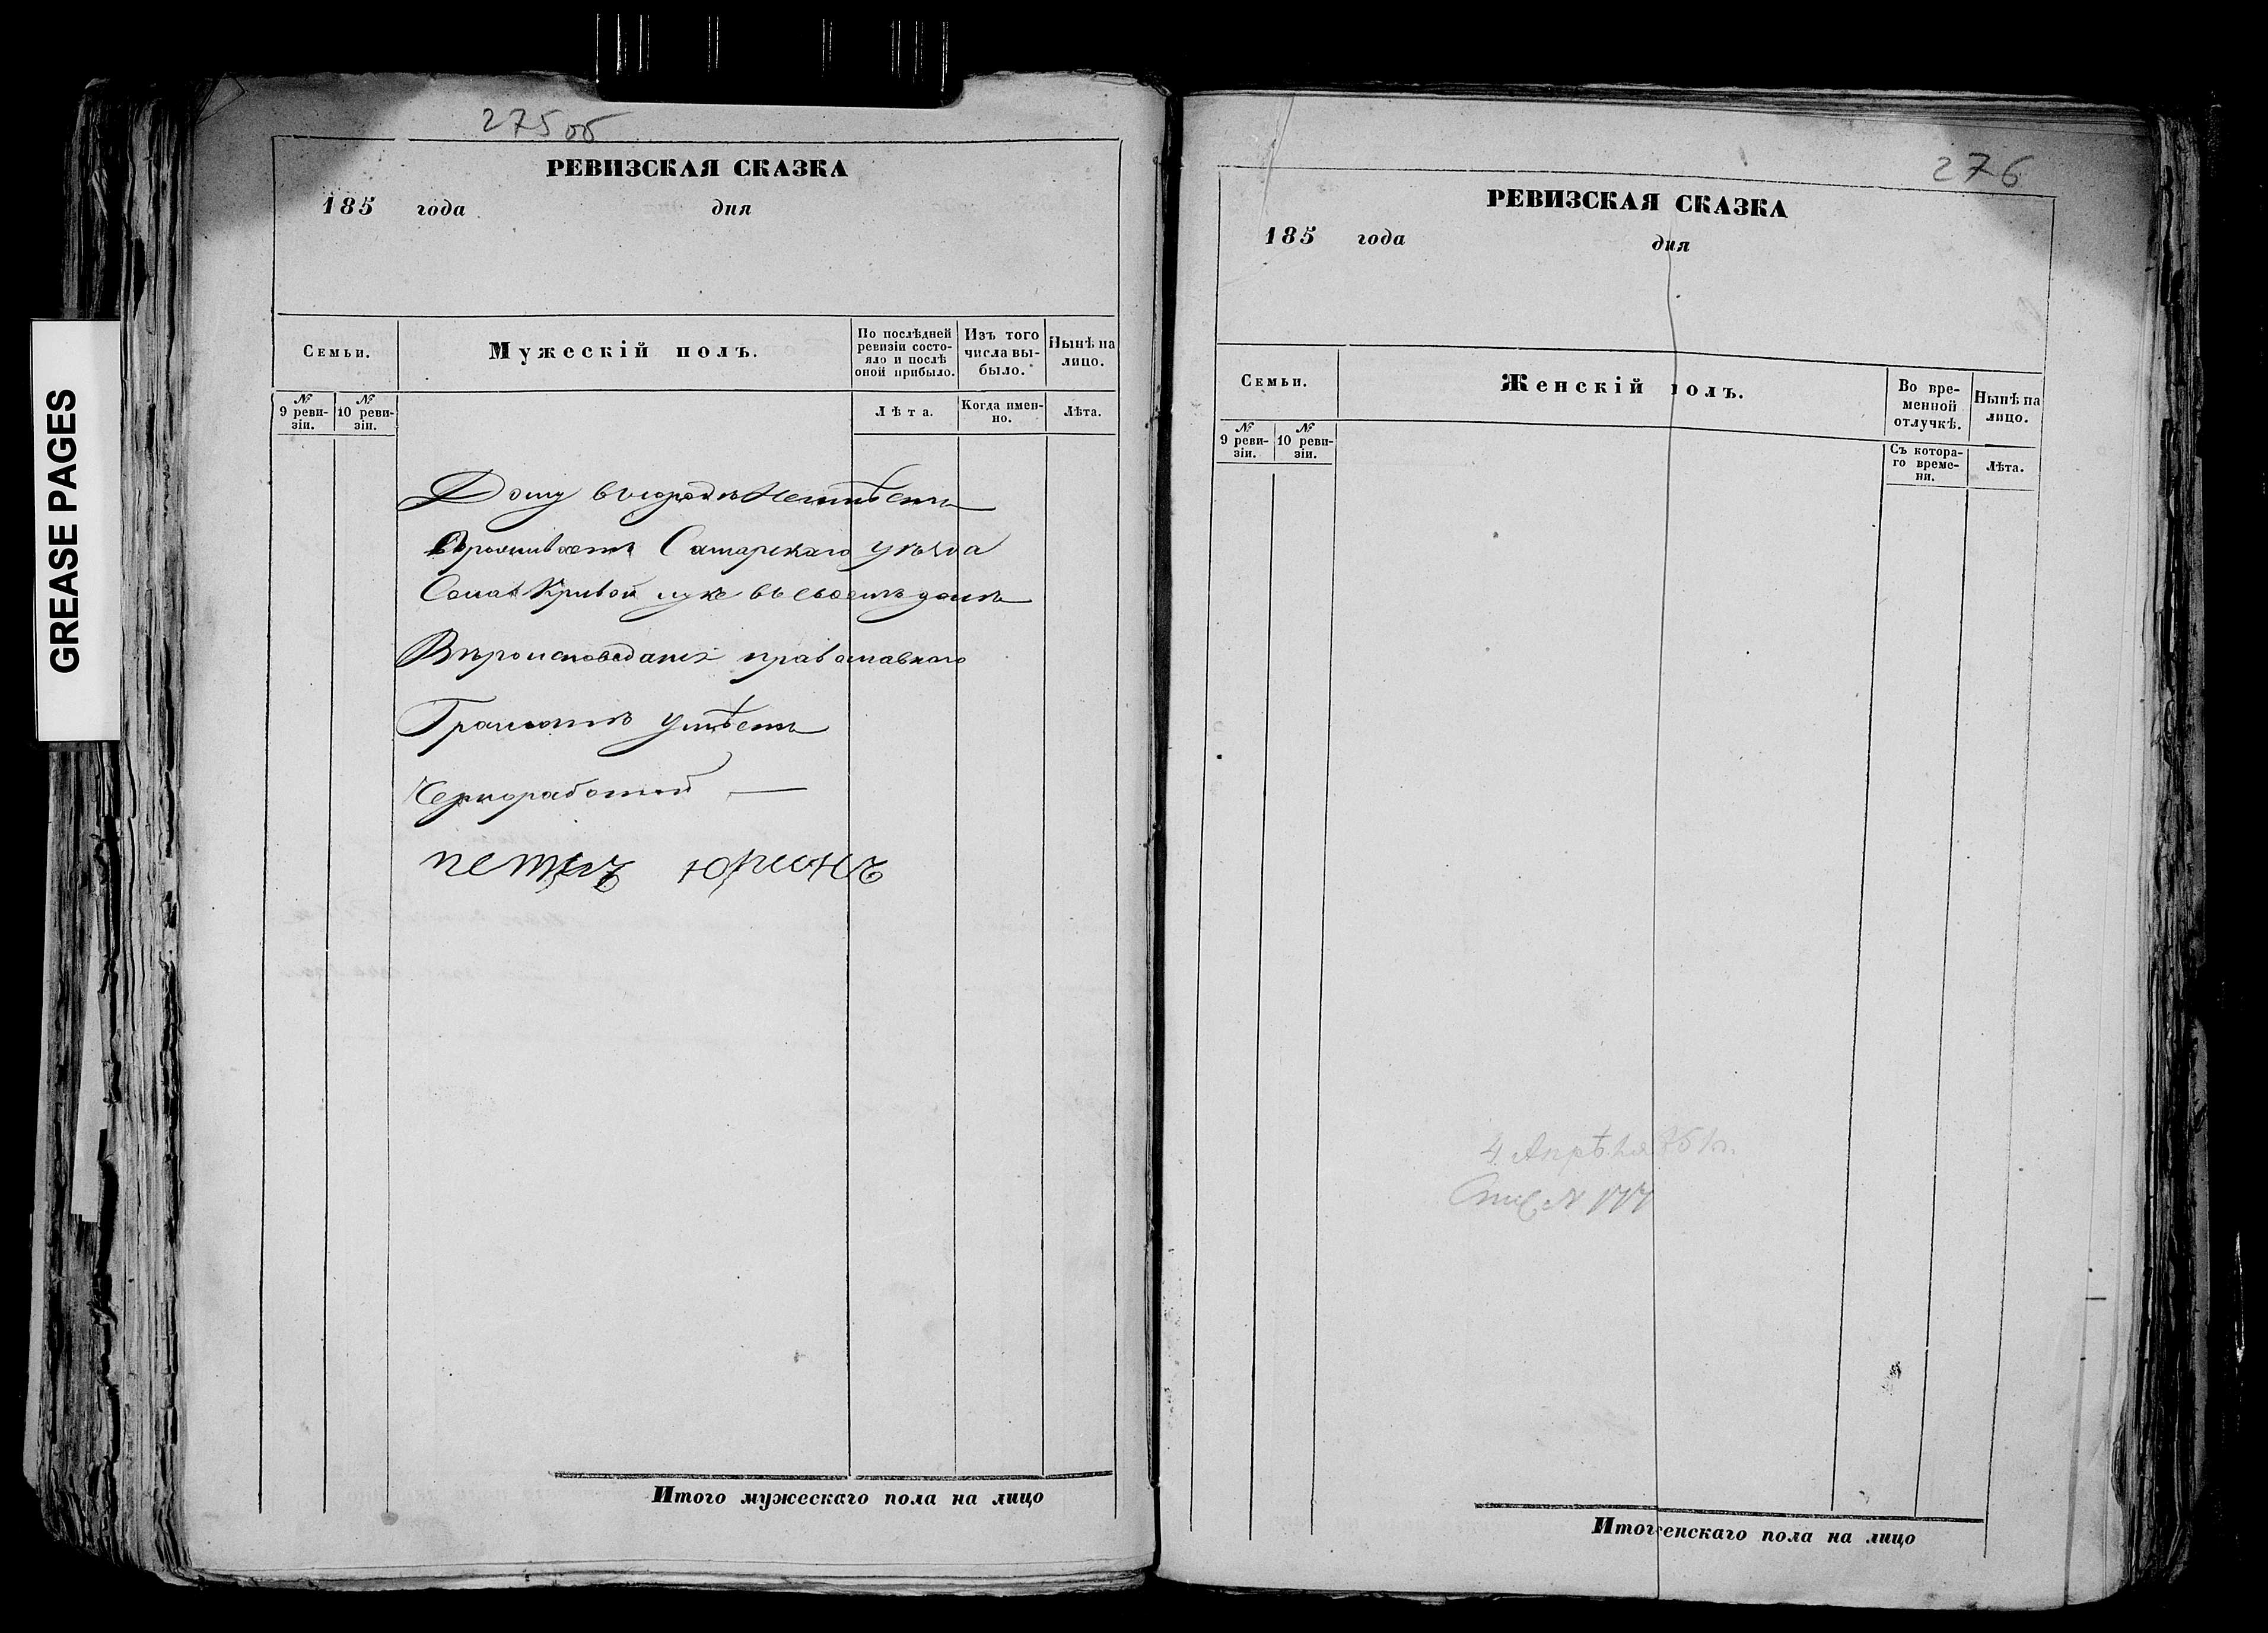 GREASE PAGES
275 об
РЕВИЗСКАЯ СКАЗКА
185 года дня
Семьи.
Мужескій полъ.
По послѣдней ревизіи состояло и послѣ оной прибыло.
Изъ того числа выбыло.
Нынѣ на лицо.
№ 9 ревизіи.
№ 10 ревизіи.
Лѣта.
Когда именно.
Лѣта.
Дому въ городѣ Неимѣетъ
Проживаетъ Самарскаго уѣзда
Кривой луке въ своемъ домѣ
Вѣроисповеданія православнаго
Грамотѣ умѣетъ
Чернорабочий —
петръ юринъ
Итого мужескаго пола на лицо
276
РЕВИЗСКАЯ СКАЗКА
185 года дня
Семьи.
Женскій полъ.
Во временной отлучкѣ.
Нынѣ на лицо.
№ 9 ревизіи.
№ 10 ревизіи.
Съ котораго времени.
Лѣта.
4 Апрѣля
№ 177
Итог енскаго пола на лицо